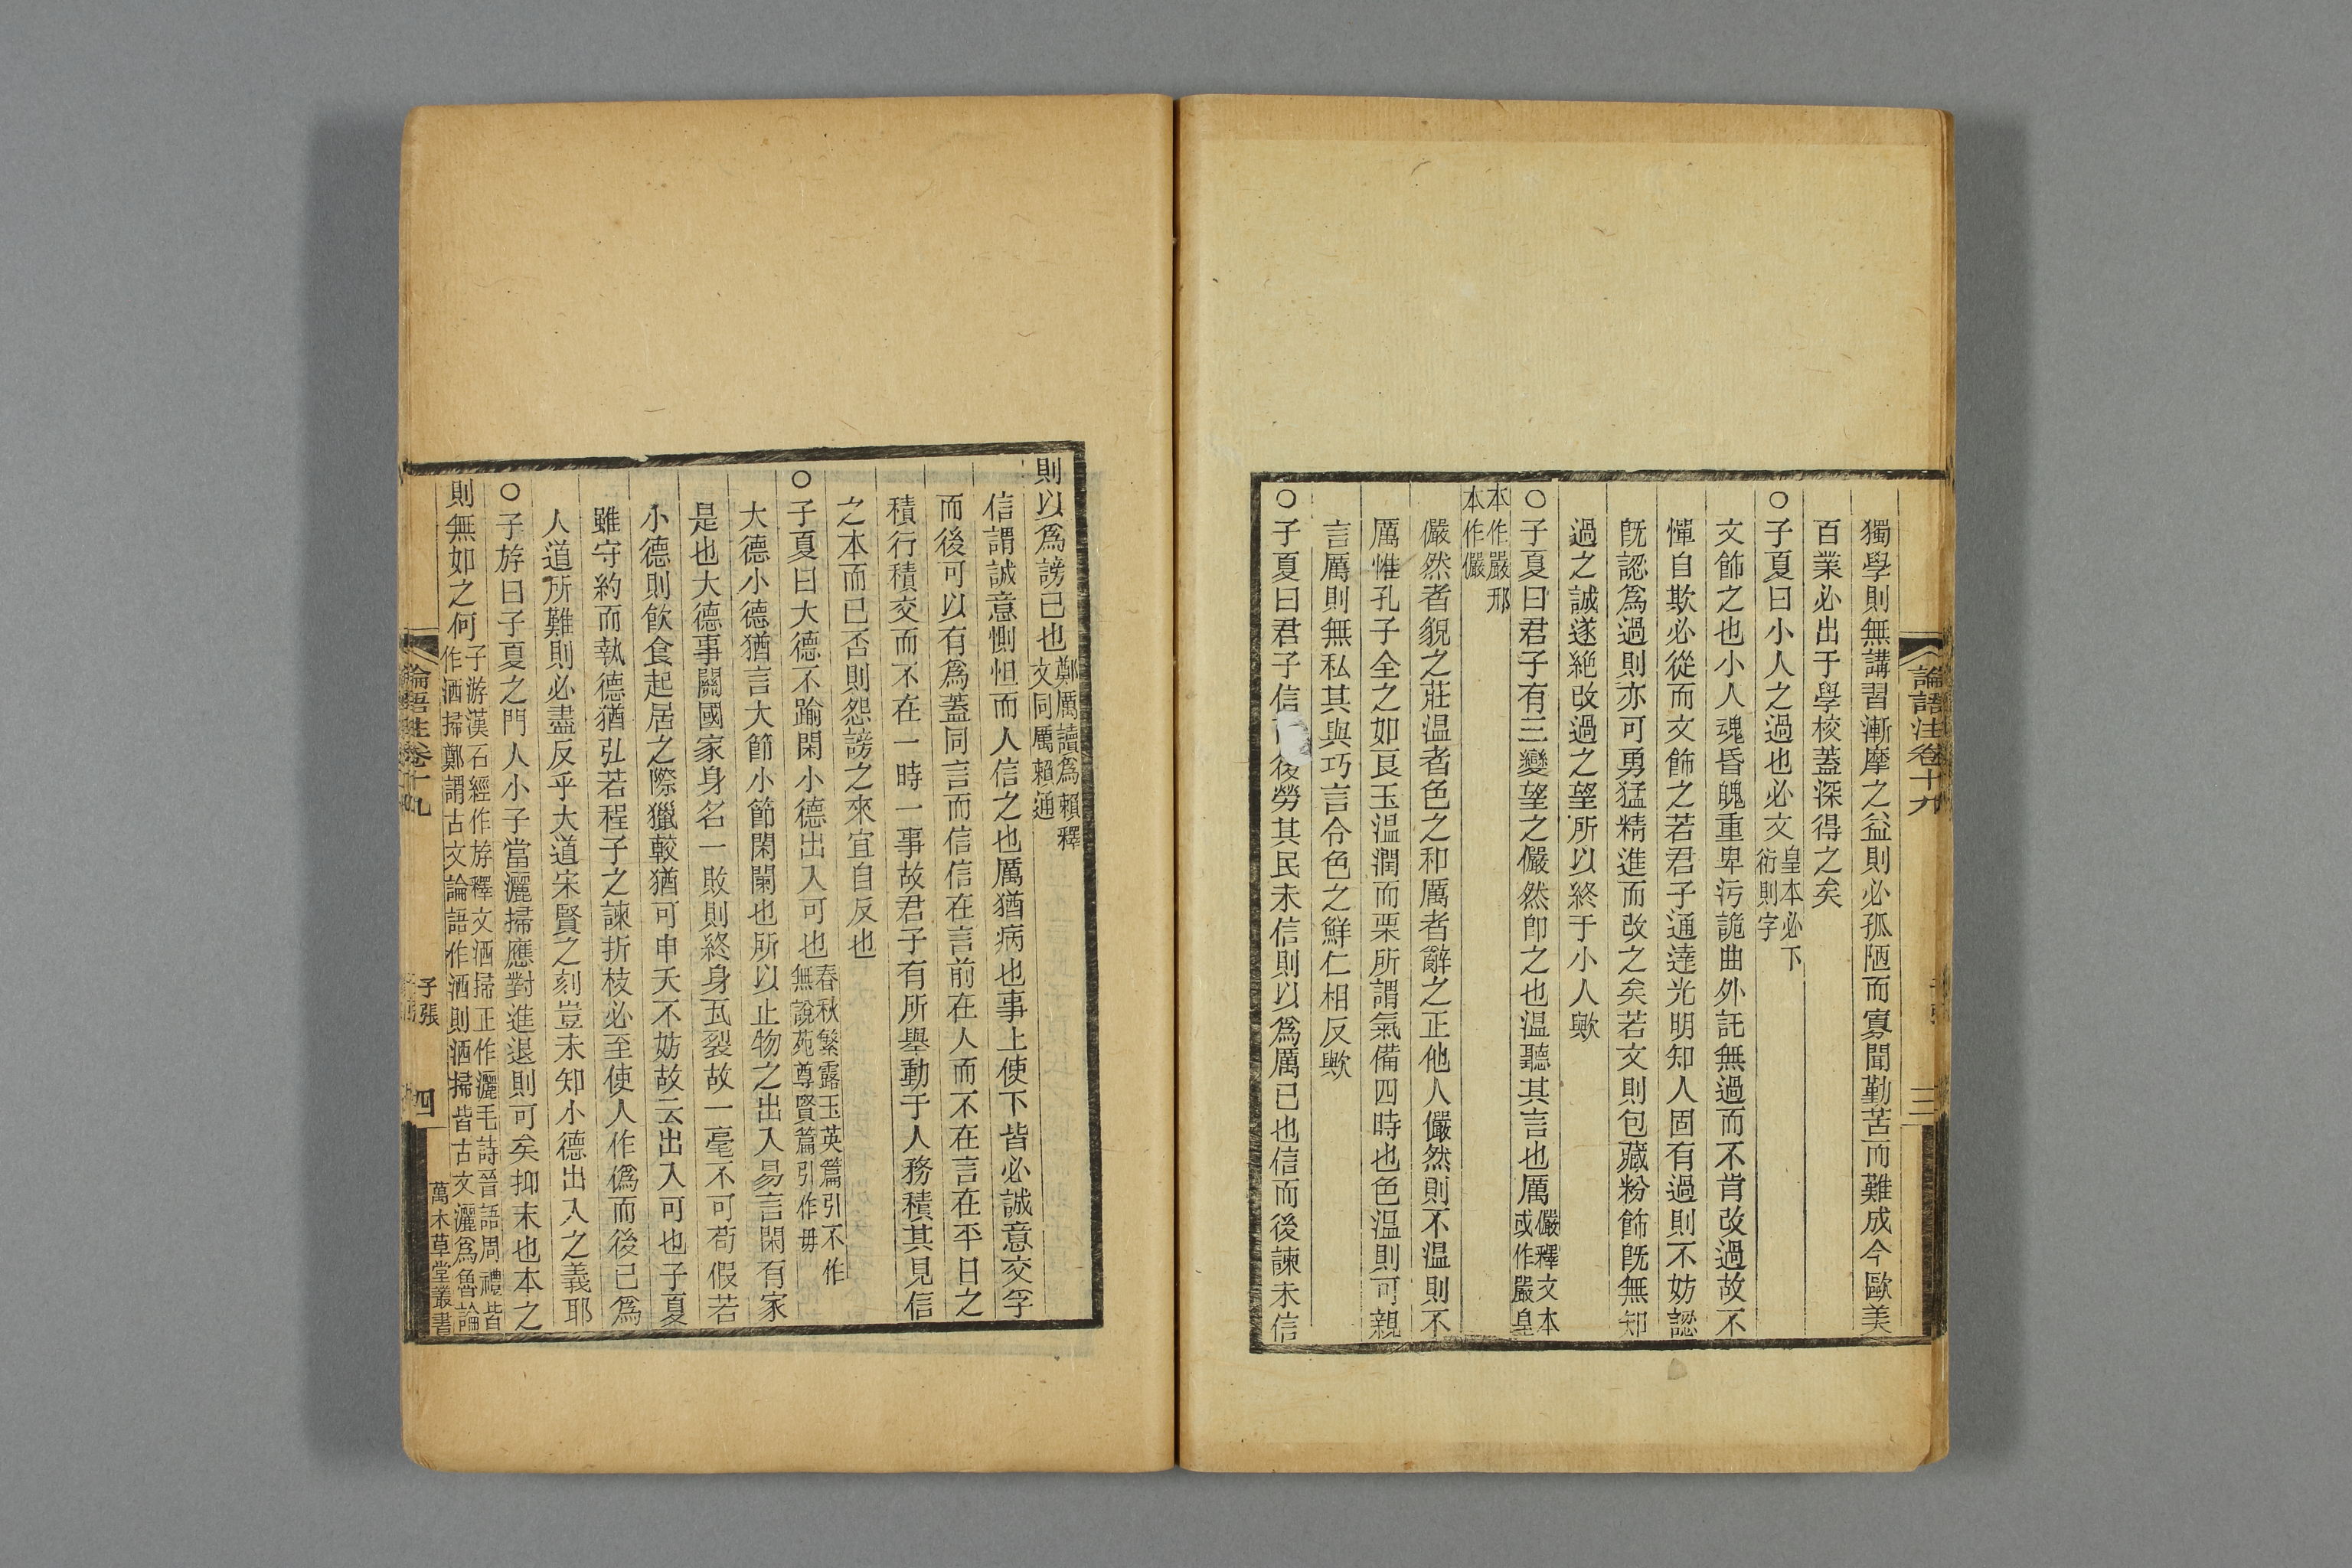 論語注卷十九
三
獨學則無講習漸摩之益則必孤陋而寡聞勤苦而難成今歐美
百業必出于學校蓋深得之矣
○子夏曰小人之過也必文皇本必下衍則字
文飾之也小人魂昏魄重卑污詭曲外託無過而不肯改過故不
憚自欺必從而文飾之若君子通達光明知人固有過則不妨認
既認為過則亦可勇猛精進而改之矣若文則包藏粉飾既無知
過之誠遂絶改過之望所以終于小人歟
○子夏曰君子有三變望之儼然卽之也温聽其言也厲儼釋文本或作嚴皇
本作嚴邢本作儼
儼然者貌之莊温者色之和厲者辭之正他人儼然則不温則不
厲惟孔子全之如良玉温潤而栗所謂氣備四時也色温則可親
言厲則無私其與巧言令色之鮮仁相反歟
○子夏曰君子信後勞其民未信則以爲厲已也信而後諫未信
則以爲謗已也鄭厲讀爲賴釋文同厲賴通
信謂誠意惻怛而人信之也厲猶病也事上使下皆必誠意交孚
而後可以有爲蓋同言而信信在言前在人而不在言在平日之
積行積交而不在一時一事故君子有所舉動于人務積其見信
之本而已否則怨謗之來宜自反也
○子夏曰大德不踰閑小德出入可也春秋繁露玉英篇引不作無說苑尊賢篇引作毋
大德小德猶言大節小節閑闌也所以止物之出入易言閑有家
是也大德事關國家身名一敗則終身瓦裂故一毫不可苟假若
小德則飲食起居之際獵較猶可申夭不妨故云出入可也子夏
雖守約而執德猶弘若程子之諫折枝必至使人作僞而後已爲
人道所難則必盡反乎大道宋賢之刻豈未知小德出入之義耶
○子斿曰子夏之門人小子當灑掃應對進退則可矣抑末也本之
則無如之何子游漢石經作斿釋文洒掃正作灑毛詩晉語周禮皆作洒掃鄭謂古文論語作洒則洒掃皆古文灑爲魯論
論語注卷十九
子張
四
萬木草堂叢書